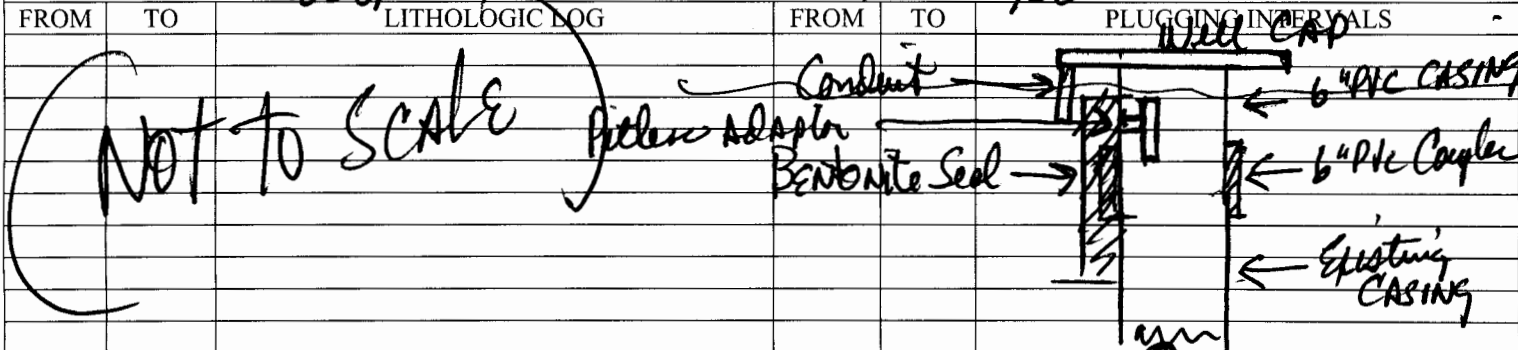 FROM TO LITHOLOGIC LOG FROM TO PLUGGING INTERVALS
Well CAP
Conduit
6" PVC CASING
NOT TO SCALE
Pitless Adapter
BENTONITE Seal
6" PVC Coupler
Existing
CASING